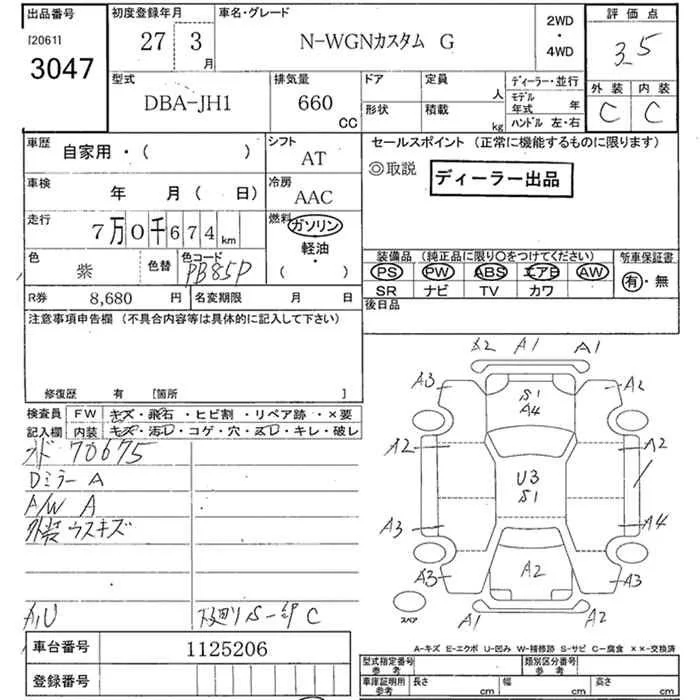 出品番号
[2061]
3047
初度登録年月
27 3
月
車名・グレード
N-WGNカスタム G
2WD
・
4WD
評価点
3.5
型式
DBA-JH1
排気量
660
CC
ドア
形状
定員
人
積載
kg
ディーラー・並行
モデル年式 年
ハンドル 左・右
外装 内装
C C
車歴
自家用・( )
シフト
AT
車検
年 月( 日)
冷房
AAC
走行
7万0千674km
燃料
ガソリン
軽油
・
( )
色
紫
色替
色コード
PB85P
R券 8,680 円
名変期限 月 日
セールスポイント (正常に機能するものに限ります)
◎取説
ディーラー出品
装備品 (純正品に限り○をつけてください)
新車保証書
PS PW ABS エアB AW
SR ナビ TV カワ
有・無
後日品
注意事項申告欄 (不具合内容等は具体的に記入して下さい)
修復歴 有 [箇所 ]
検査員記入欄
FW キズ・飛石・ヒビ割・リペア跡・×要
内装 キズ・汚レ・コゲ・穴・スレ・キレ・破レ
70675
Dミラー A
A/W A
外装ウスキズ
A,U
下廻りS-錆 C
A2 A1 A1
A3 S1 A4 A2
A2 A2
U3
S1
A3 A4
A3 A2 A3
A1 A2
スペア
A-キズ E-エクボ U-凹み W-補修跡 S-サビ C-腐食 ××-交換済
車台番号 1125206
登録番号
型式指定番号
参考
類別区分番号
参考
車庫証明用
参考
長さ cm 幅 cm 高さ cm